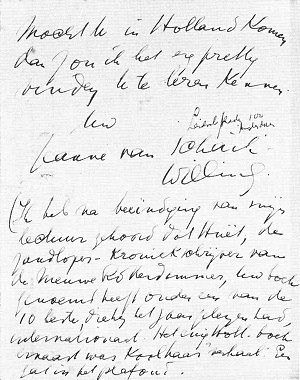 Mocht U in Holland komen
dan zou ik het erg prettig
vinden U te leren kennen.
Uw
Janne van
Willing.
(Ik heb na beëindiging van mijn
lectuur gehoord dat Huët, de
kroniekschrijver van
de Nieuwe Rotterdammer, Uw boek
genoemd heeft onder een van de
10 beste die hij het jaar gelezen had,
internationaal. Het enig Holl. boek
ernaast was Koolhaas verhaal: Een
gat in het plafond.